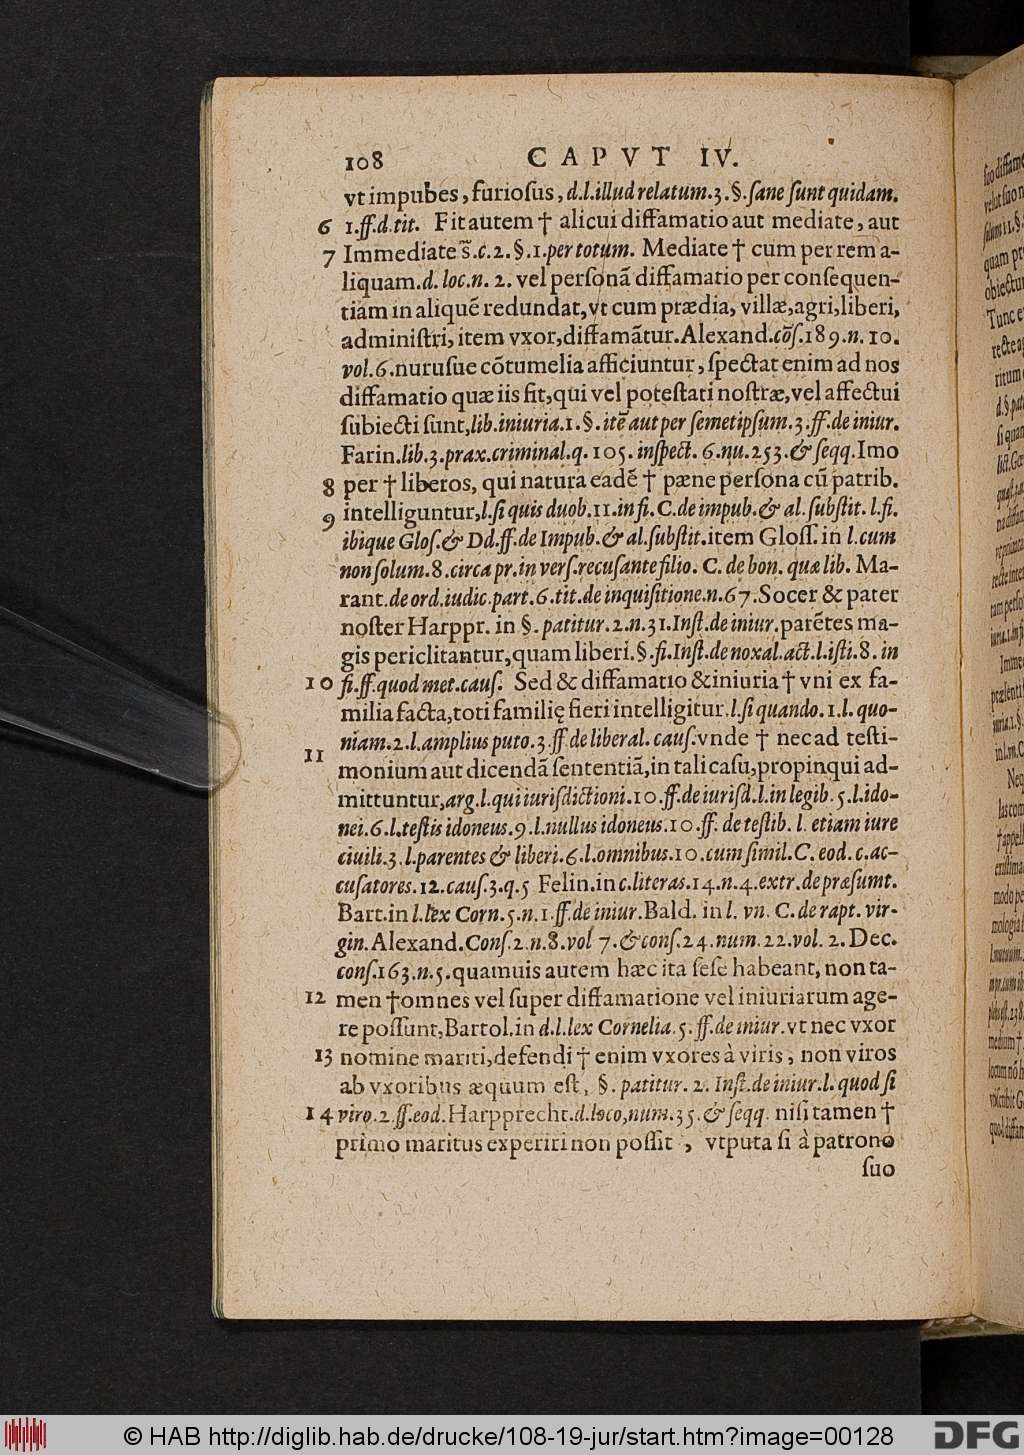 108 CAPVT IV.
vt impubes, furioſus, d.l.illud relatum.3.§.ſane ſunt quidam.
6 1.ff.d.tit. Fit autem † alicui diffamatio aut mediate, aut
7 Immediate s̃.c.2.§.1.per totum. Mediate † cum per rem a-
liquam.d.loc.n.2. vel perſonã diffamatio per conſequen-
tiam in aliquẽ redundat, vt cum prædia, villæ, agri, liberi,
adminiſtri, item vxor, diffamãtur. Alexand.cõſ.189.n.10.
vol.6.nurusue cõtumelia afficiuntur, ſpectat enim ad nos
diffamatio quæ iis fit, qui vel poteſtati noſtræ, vel affectui
ſubiecti ſunt, lib.iniuria.1.§.itẽ aut per ſemetipſum.3.ff.de iniur.
Farin.lib.3.prax.criminal.q.105.inſpect.6.nu.253.& ſeqq. Imo
8 per † liberos, qui natura eadẽ † pæne perſona cũ patrib.
9 intelliguntur, l.ſi quis duob.11.in fi.C.de impub.& al.ſubſtit.l.fi.
ibique Gloſ.& Dd.ff.de Impub.& al.ſubſtit. item Gloſſ. in l.cum
non ſolum.8.circa pr.in verſ.recuſante filio. C. de bon. quæ lib. Ma-
rant.de ord.iudic.part.6.tit.de inquiſitione.n.67. Socer & pater
noſter Harppr. in §.patitur.2.n.31.Inſt.de iniur. parẽtes ma-
gis periclitantur, quam liberi.§.fi.Inſt.de noxal.act.l.iſti.8. in
10 fi.ff.quod met.cauſ. Sed & diffamatio & iniuria † vni ex fa-
milia facta, toti familię fieri intelligitur.l.ſi quando.1.l.quo-
niam.2.l.amplius puto.3.ff.de liberal.cauſ. vnde † nec ad teſti-
11 monium aut dicendã ſententiã, in tali caſu, propinqui ad-
mittuntur, arg.l.qui iurisdictioni.10.ff.de iurisd.l.in legib.5.l.ido-
nei.6.l.teſtis idoneus.9.l.nullus idoneus.10.ff. de teſtib. l. etiam iure
ciuili.3.l.parentes & liberi.6.l.omnibus.10.cum ſimil.C. eod.c.ac-
cuſatores.12.cauſ.3.q.5 Felin.in c.literas.14.n.4.extr.de præſumt.
Bart.in l.lex Corn.5.n.1.ff.de iniur. Bald. in l. vn. C. de rapt. vir-
gin. Alexand. Conſ.2.n.8.vol 7.& conſ.24.num.22.vol. 2. Dec.
conſ.163.n.5. quamuis autem hæc ita ſeſe habeant, non ta-
12 men † omnes vel ſuper diffamatione vel iniuriarum age-
re poſſunt, Bartol. in d.l.lex Cornelia.5.ff.de iniur. vt nec vxor
13 nomine mariti, defendi † enim vxores à viris, non viros
ab vxoribus æquum eſt, §. patitur. 2. Inſt.de iniur.l. quod ſi
14 viro.2.ff.eod. Harpprecht.d.loco, num.35.& ſeqq. niſi tamen †
primo maritus experiri non poſſit, vtputa ſi à patrono
ſuo
© HAB http://diglib.hab.de/drucke/108-19-jur/start.htm?image=00128
DFG